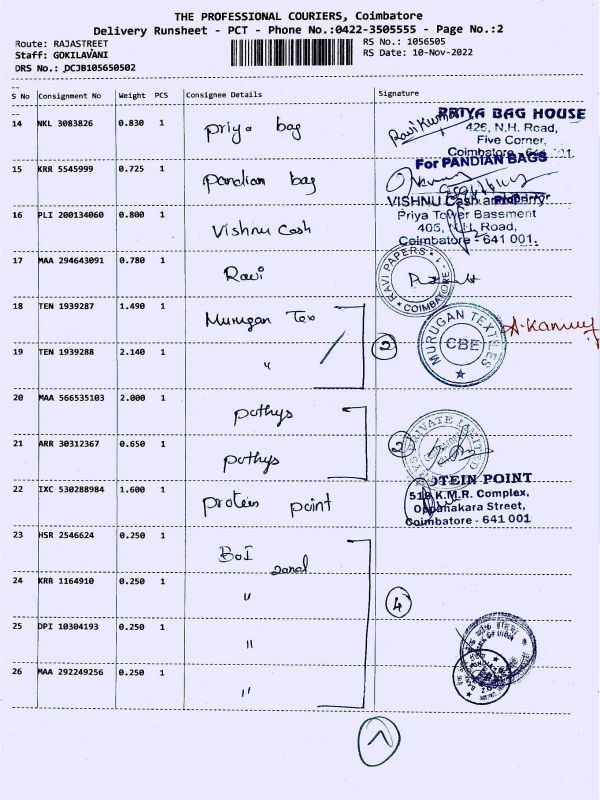 THE PROFESSIONAL COURIERS, Coimbatore
Delivery Runsheet - PCT - Phone No.:0422-3505555 - Page No.:2
Route: RAJASTREET
RS No.: 1056505
Staff: GOKILAVANI
RS Date: 10-Nov-2022
DRS No.: DCJB105650502
S No Consignment No Weight PCS Consignee Details Signature
14 NKL 3083826 0.830 1 priya bag Ravi Kumar
PRIYA BAG HOUSE
426, N.H. Road,
Five Corner,
Coimbatore - 641 001.
15 KRR 5545999 0.725 1 pandian bag
For PANDIAN BAGS
16 PLI 200134060 0.800 1 Vishnu Cash
VISHNU Cash and
Priya Tower Basement
405, N.H. Road,
Coimbatore - 641 001.
17 MAA 294643091 0.780 1 Ravi
RAVI PAPERS
COIMBATORE - 1
18 TEN 1939287 1.490 1 Murugan Tex
19 TEN 1939288 2.140 1 "
2
MURUGAN TEXTILES
CBE
20 MAA 566535103 2.000 1 pothys
21 ARR 30312367 0.650 1 pothys
2
PRIVATE LIMITED
22 IXC 530288984 1.600 1 protein point
PROTEIN POINT
518, K.M.R. Complex,
Oppanakara Street,
Coimbatore - 641 001
23 HSR 2546624 0.250 1 BoI
zonal
24 KRR 1164910 0.250 1 "
4
25 DPI 10304193 0.250 1 "
26 MAA 292249256 0.250 1 "